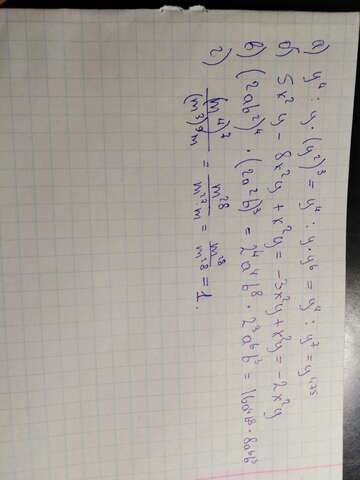 а) y⁴ : y · (y²)³ = y⁴ : y · y⁶ = y⁴ : y⁷ = y⁴⁷⁵
б) 5x² y - 8x²y + x²y = -3x²y + x²y = -2x²y
в) (2ab²)⁴ · (2a²b)³ = 2⁴a⁴b⁸ · 2³a⁶b³ = 16a⁴b⁸ · 8a⁶b³
г) (m⁴)⁷ / (m³)⁹ m = m²⁸ / m²⁷ · m = m²⁸ / m²⁸ = 1.